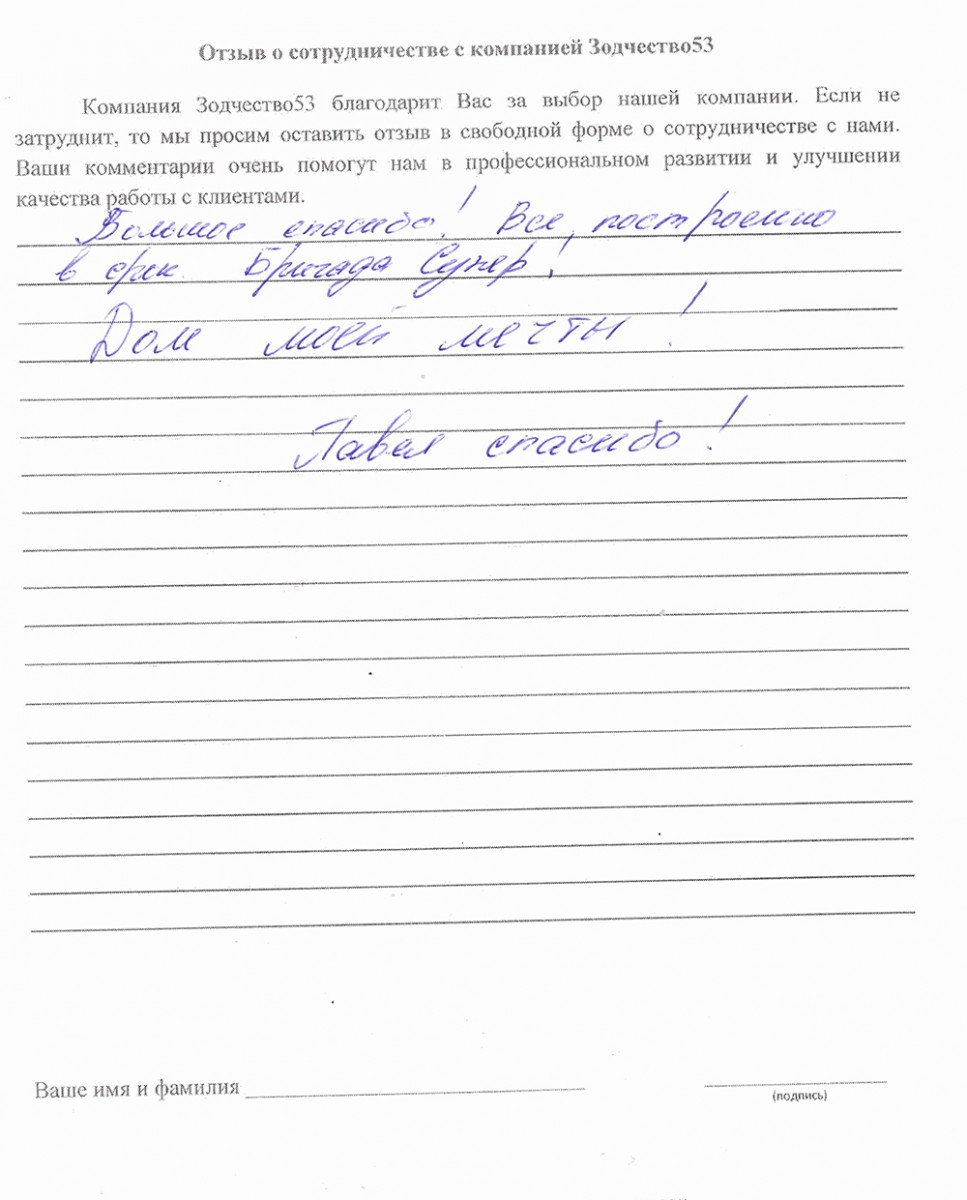 Отзыв о сотрудничестве с компанией Зодчество53
Компания Зодчество53 благодарит Вас за выбор нашей компании. Если не
затруднит, то мы просим оставить отзыв в свободной форме о сотрудничестве с нами.
Ваши комментарии очень помогут нам в профессиональном развитии и улучшении
качества работы с клиентами.
Большое спасибо! Все построенно
в срок. Бригада Супер!
Дом моей мечты!
Павел спасибо!
Ваше имя и фамилия
(подпись)